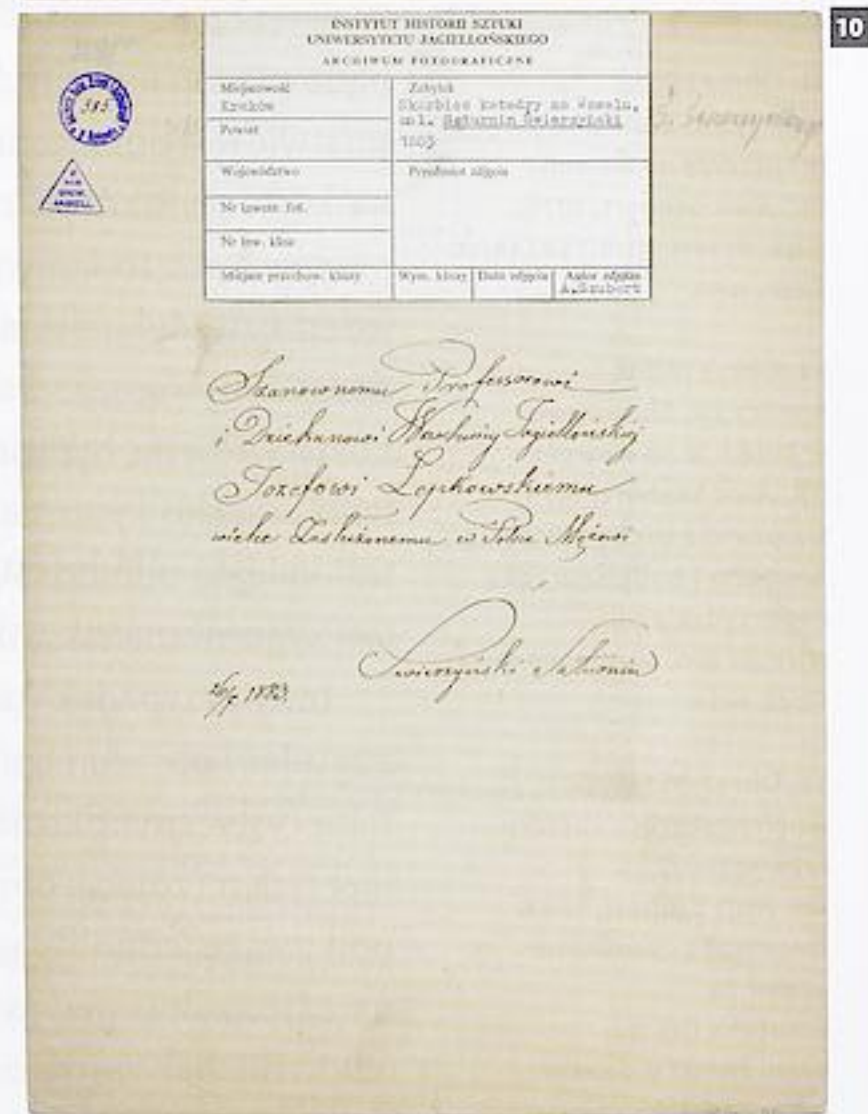 10
INSTYTUT HISTORII SZTUKI
UNIWERSYTETU JAGIELLOŃSKIEGO
ARCHIWUM FOTOGRAFICZNE
Miejscowość
Kraków
Zabytek
Skarbiec katedry na Wawelu,
mal. Saturnin Świerzyński
Powiat
Województwo
Przedmiot zdjęcia
Nr inwent. fot.
Nr inw. klisz
Miejsce przechow. kliszy
Wym. kliszy
Data zdjęcia
Autor zdjęcia
A.Szubert
385
Szanownemu Professorowi
i Dziekanowi Wszechnicy Jagiellońskiej
Józefowi Łepkowskiemu
wielce Zasłużonemu w Polsce Mężowi
Swierzyński Saturnin
1883